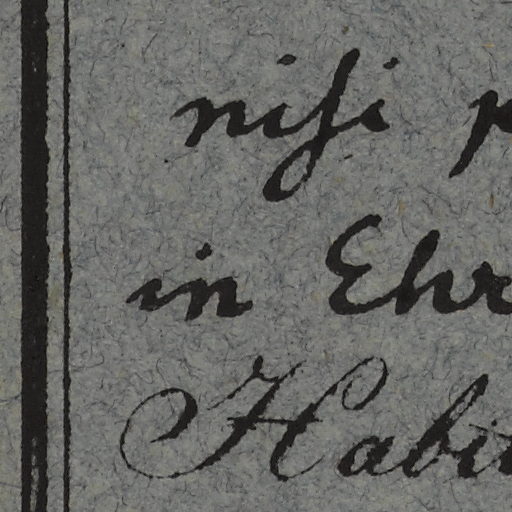 nisi p
in Ehr
Habit